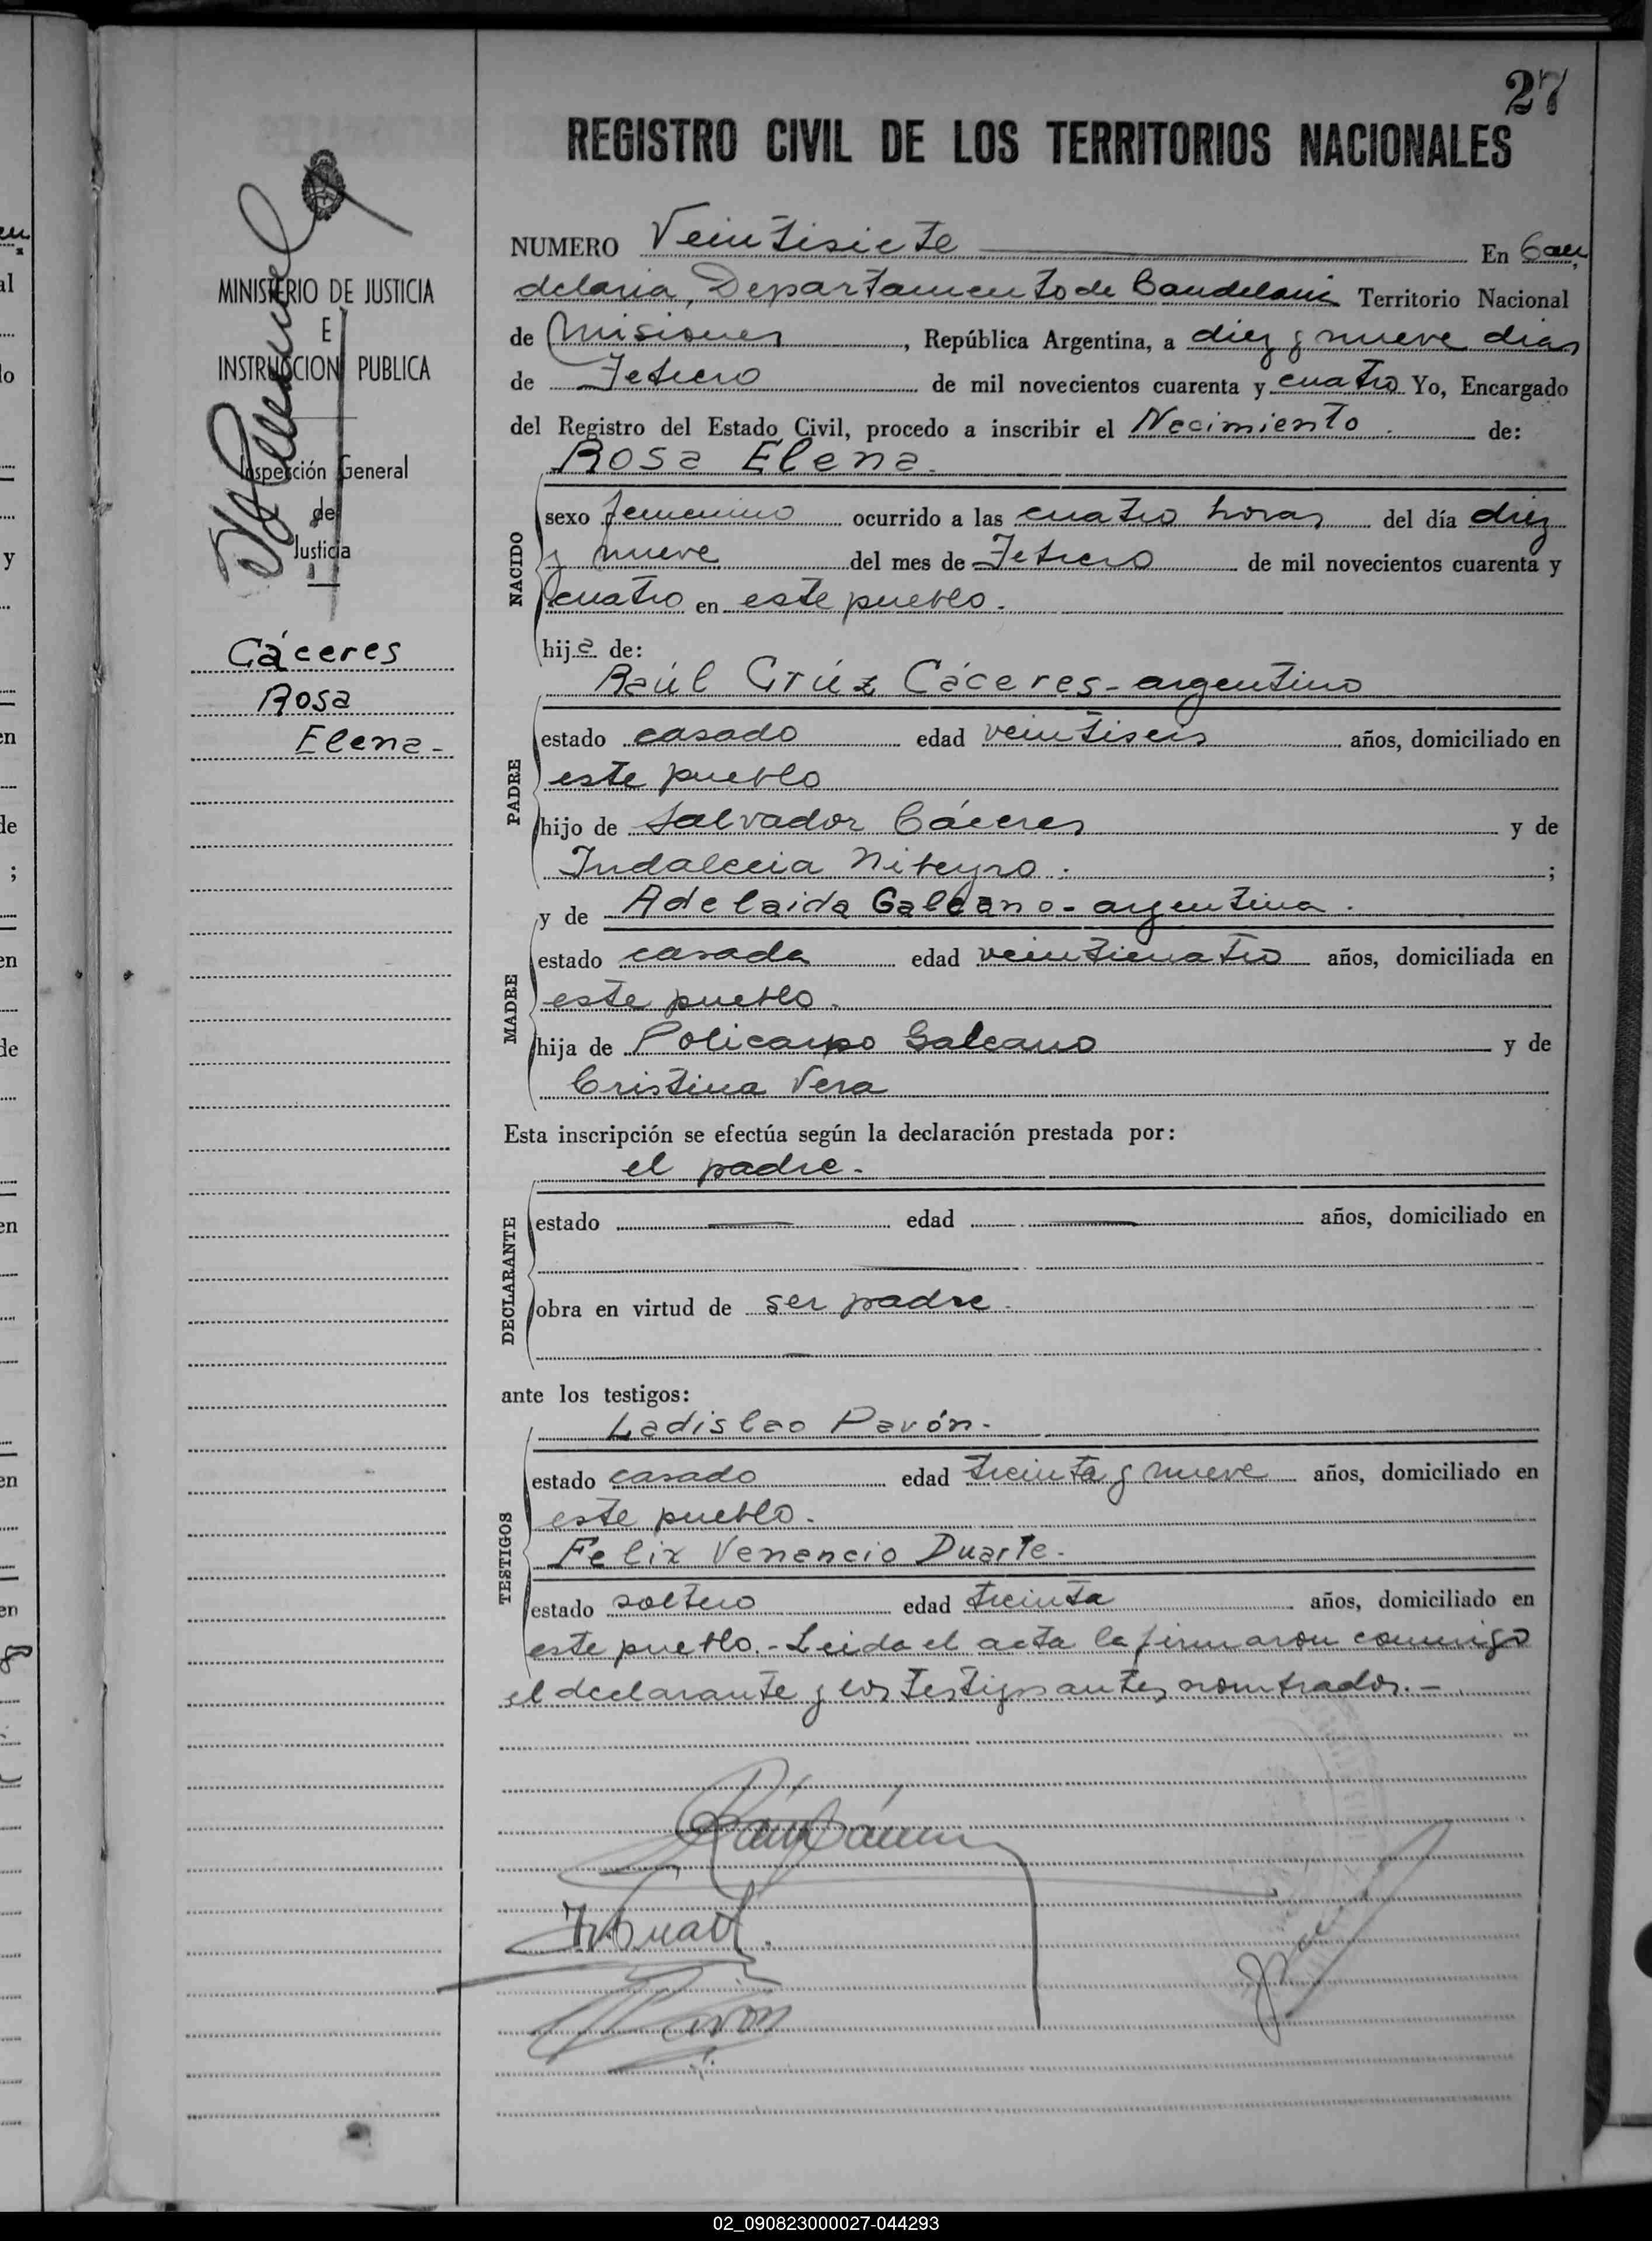 27
REGISTRO CIVIL DE LOS TERRITORIOS NACIONALES
NUMERO Veintisiete En Can
delaria, Departamento de Candelaria Territorio Nacional
de Misiones, República Argentina, a diez y nueve dias
de Febrero de mil novecientos cuarenta y cuatro Yo, Encargado
del Registro del Estado Civil, procedo a inscribir el Nacimiento de:
Rosa Elena.
NACIDO
sexo femenino ocurrido a las cuatro horas del día diez
y nueve del mes de Febrero de mil novecientos cuarenta y
cuatro en este pueblo.
hija de:
Raúl Crúz Cáceres - argentino
PADRE
estado casado edad veintiseis años, domiciliado en
este pueblo
hijo de Salvador Cáceres y de
Indalecia Niveyro. ;
y de Adelaida Galeano - argentina.
MADRE
estado casada edad veinticuatro años, domiciliada en
este pueblo.
hija de Policarpo Galeano y de
Cristina Vera
Esta inscripción se efectúa según la declaración prestada por:
el padre.
DECLARANTE
estado edad años, domiciliado en
obra en virtud de ser padre.
ante los testigos:
Ladislao Pavón.
TESTIGOS
estado casado edad treinta y nueve años, domiciliado en
este pueblo.
Felix Venancio Duarte.
estado soltero edad treinta años, domiciliado en
este pueblo. - Leida el acta la firmaron conmigo
el declarante y los testigos antes nombrados. -
MINISTERIO DE JUSTICIA
E
INSTRUCCION PUBLICA
Inspección General
de
Justicia
Cáceres
Rosa
Elena -
02_090823000027-044293